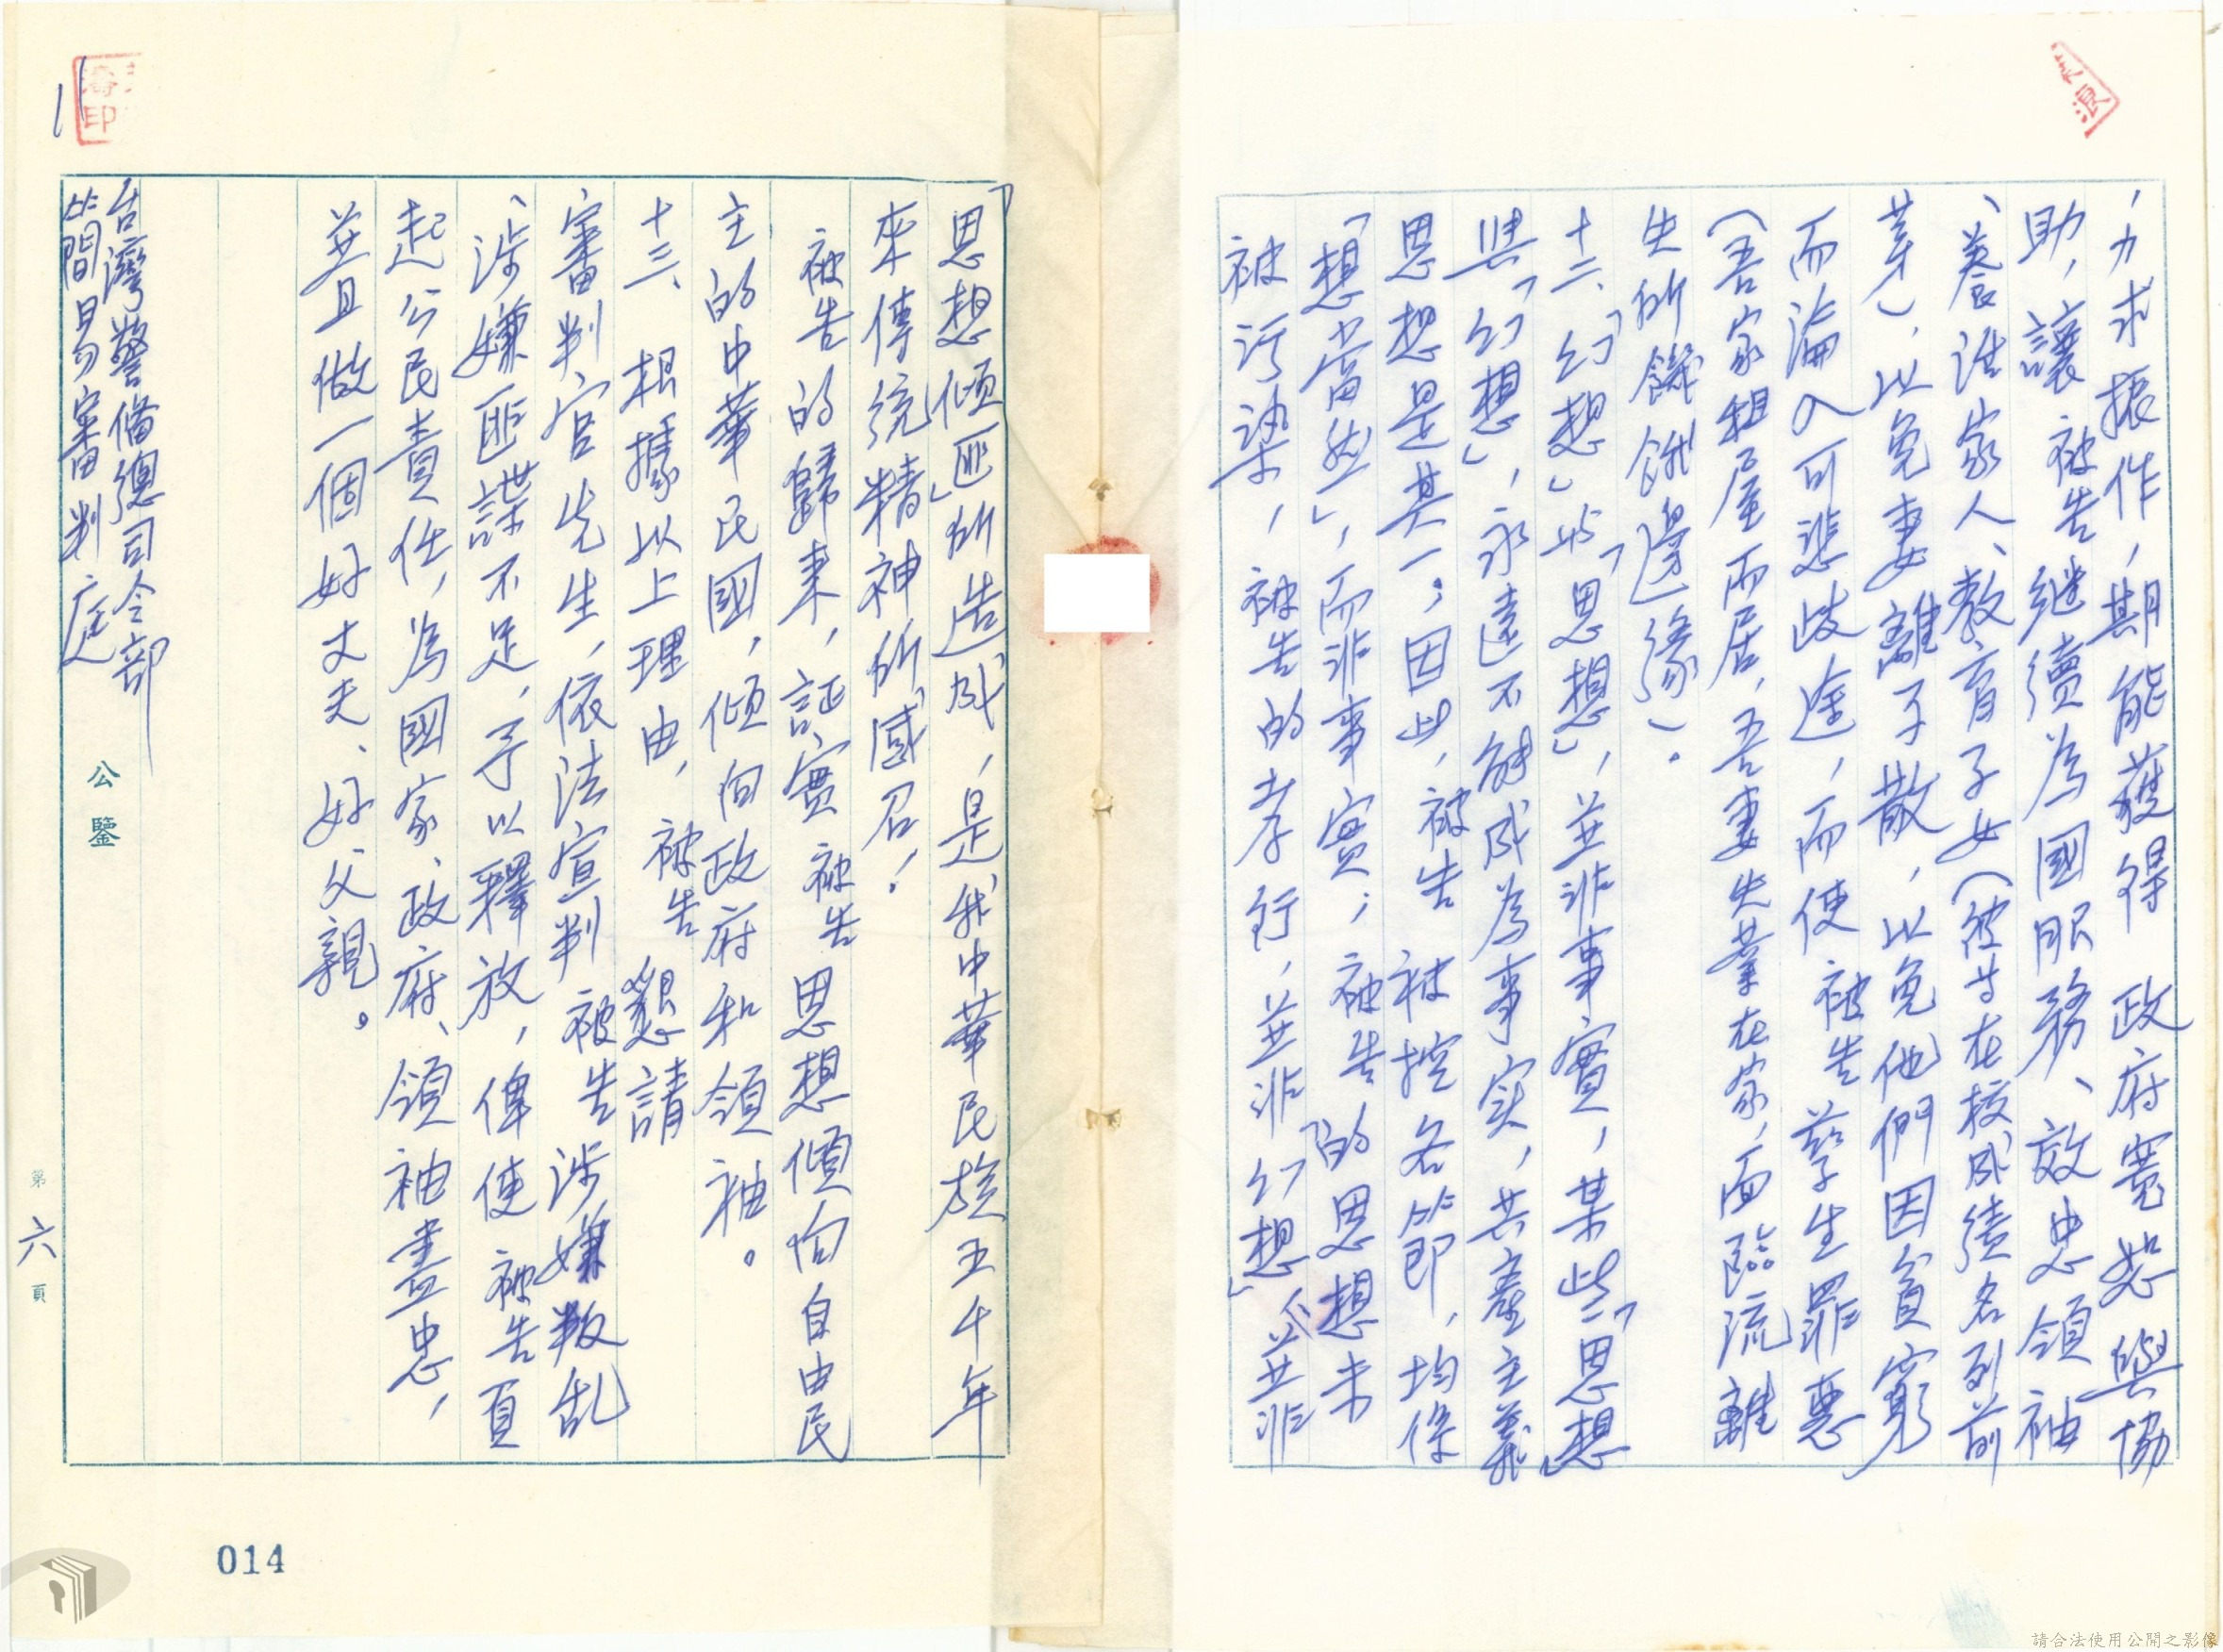 ，力求振作，期能獲得 政府寬恕與協
助，讓 被告 继續為國服務、效忠領袖
、養活家人、教育子女（彼等在校成績名列前
茅），以免妻離子散，以免他們因貧窮
而淪入可悲歧途，而使 被告 孽生罪惡
（吾家租屋而居，吾妻失業在家，面臨流離
失所飢餓邊緣）。
十二、「幻想」與「思想」，並非事實，某些「思想」
與「幻想」，永遠不能成為事实，共產主義
思想是其一；因此，被告 被控各節，均係
「想當然」，而非事實；被告的思想未
被污染，被告的孝行，並非「幻想」，並非
「思想傾匪」所造成，是我中華民族五千年
來傳統精神所「感召」！
被告的歸來，証實 被告 思想傾向自由民
主的中華民國，傾向政府和領袖。
十三、根據以上理由，被告 懇請
審判官先生，依法宣判 被告涉嫌叛乱
、涉嫌匪諜不足，予以釋放，俾使 被告肩
起公民責任，為國家、政府、領袖盡忠，
並且做一個好丈夫、好父親。
台灣警備總司令部
簡易審判庭 公鑒
第六頁
014
請合法使用公開之影像